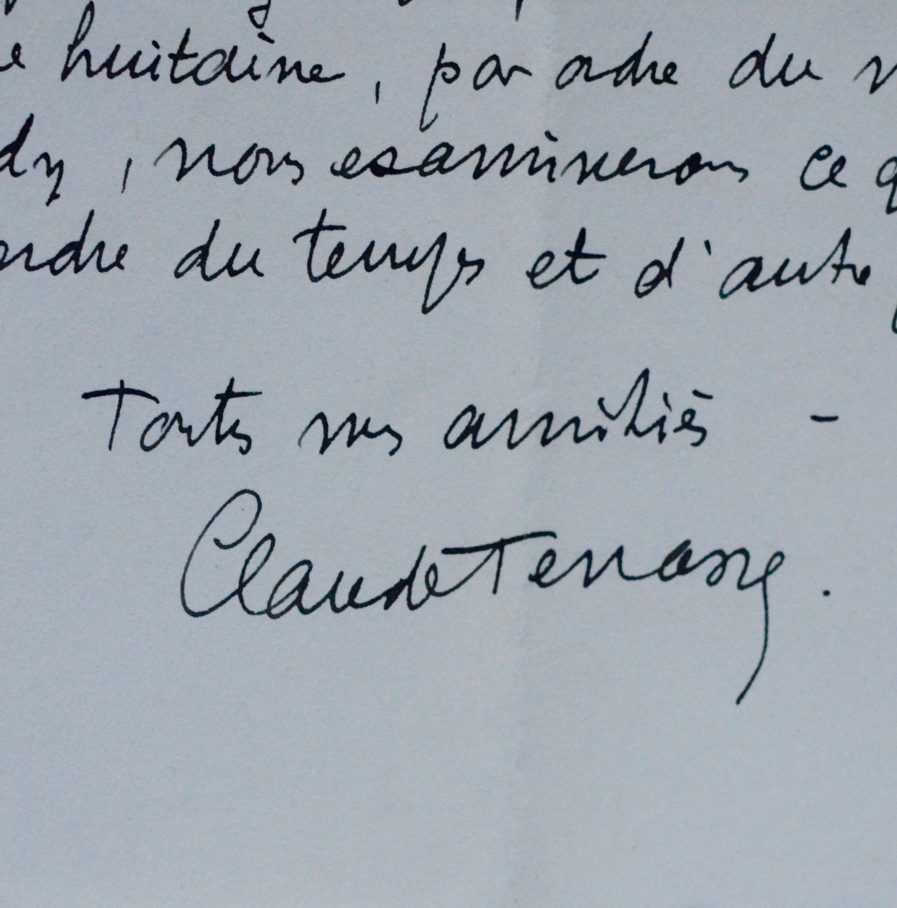 huitaine, par ordre du
dy, nous examinerons ce q
endre du temps et d'autre
Toutes mes amitiés -
Claude Terrasse.